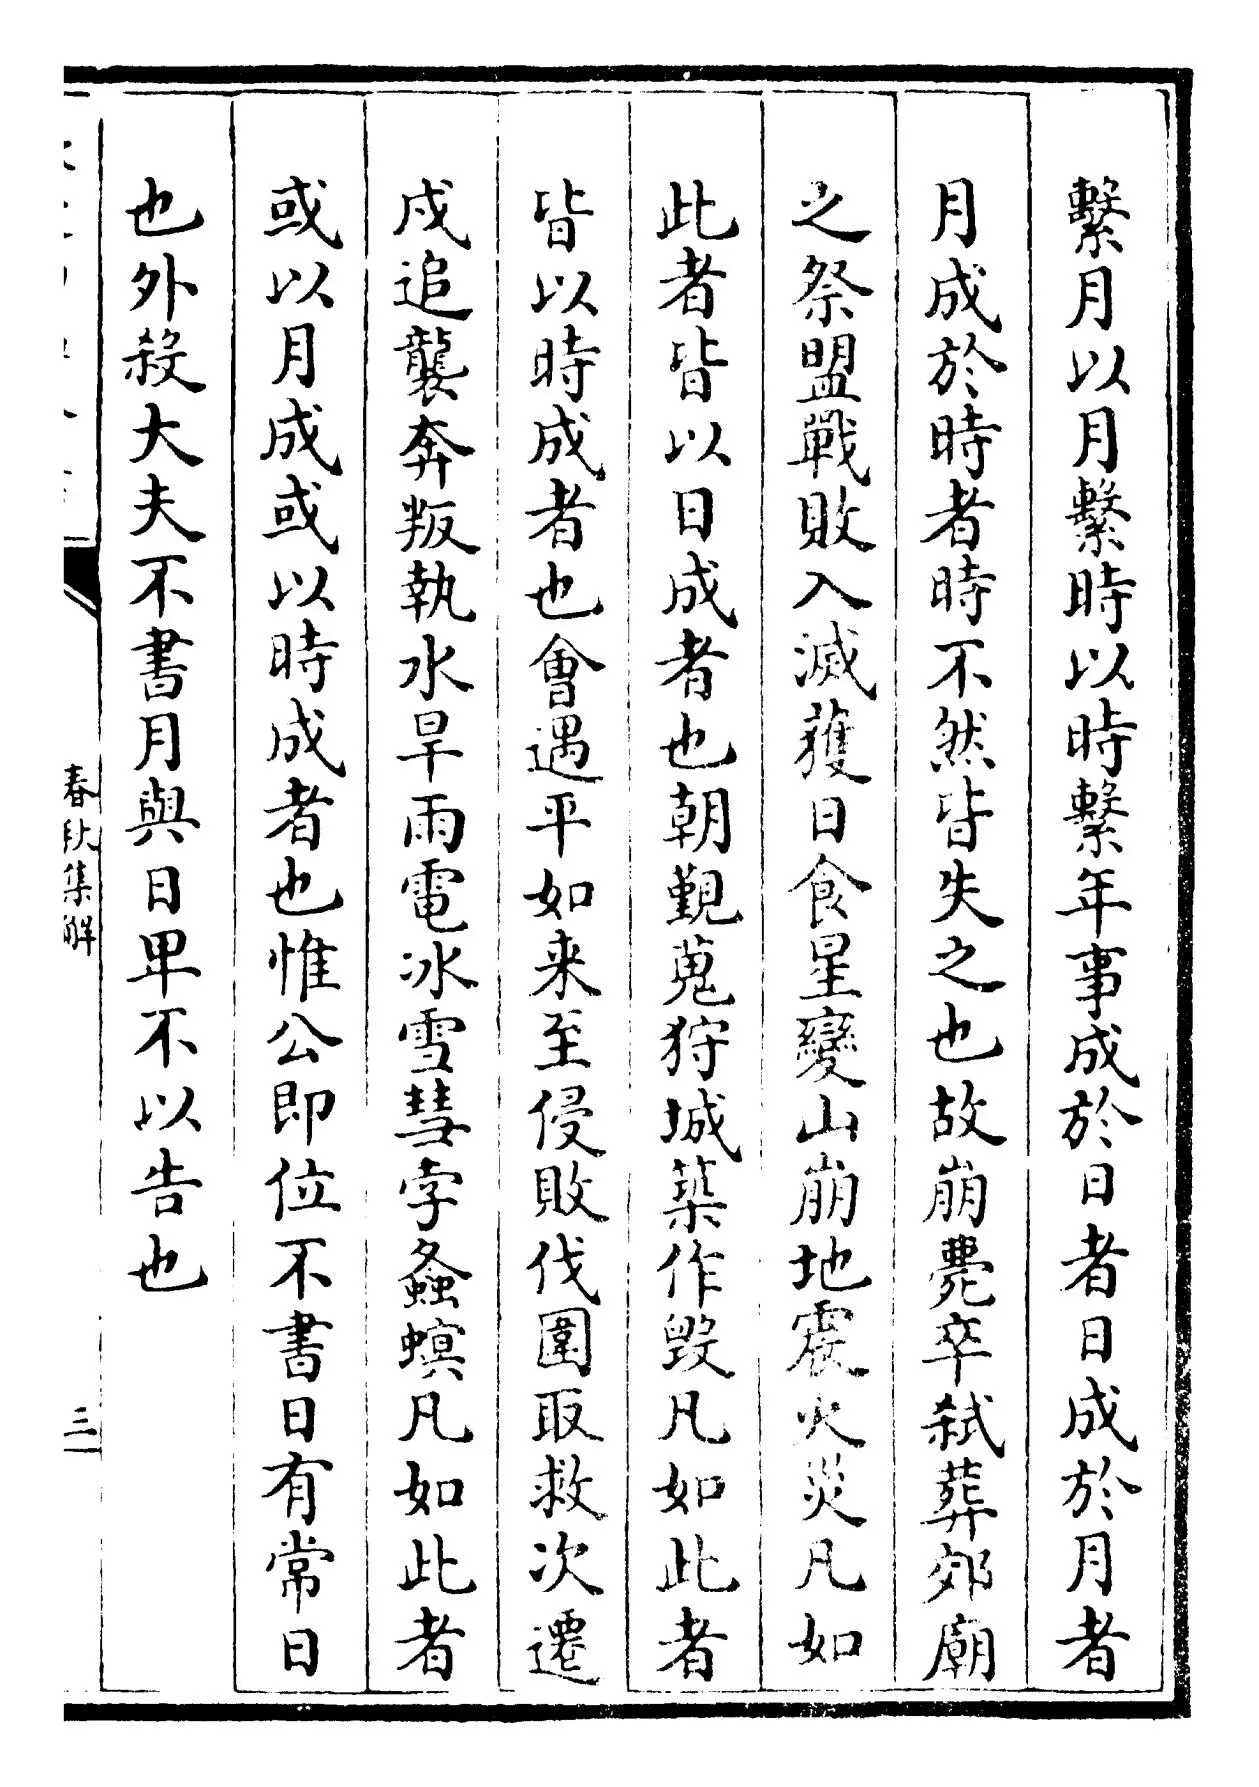 繫月以月繫時以時繫年事成於日者日成於月者
月成於時者時不然皆失之也故崩薨卒弑葬郊廟
之祭盟戰敗入滅獲日食星變山崩地震火災凡如
此者皆以日成者也朝覲蒐狩城築作毀凡如此者
皆以時成者也會遇平如来至侵敗伐圍取救次遷
戍追襲奔叛執水旱雨雹冰雪彗孛螽螟凡如此者
或以月成或以時成者也惟公即位不書日有常日
也外殺大夫不書月與日卑不以告也
春秋集解
三